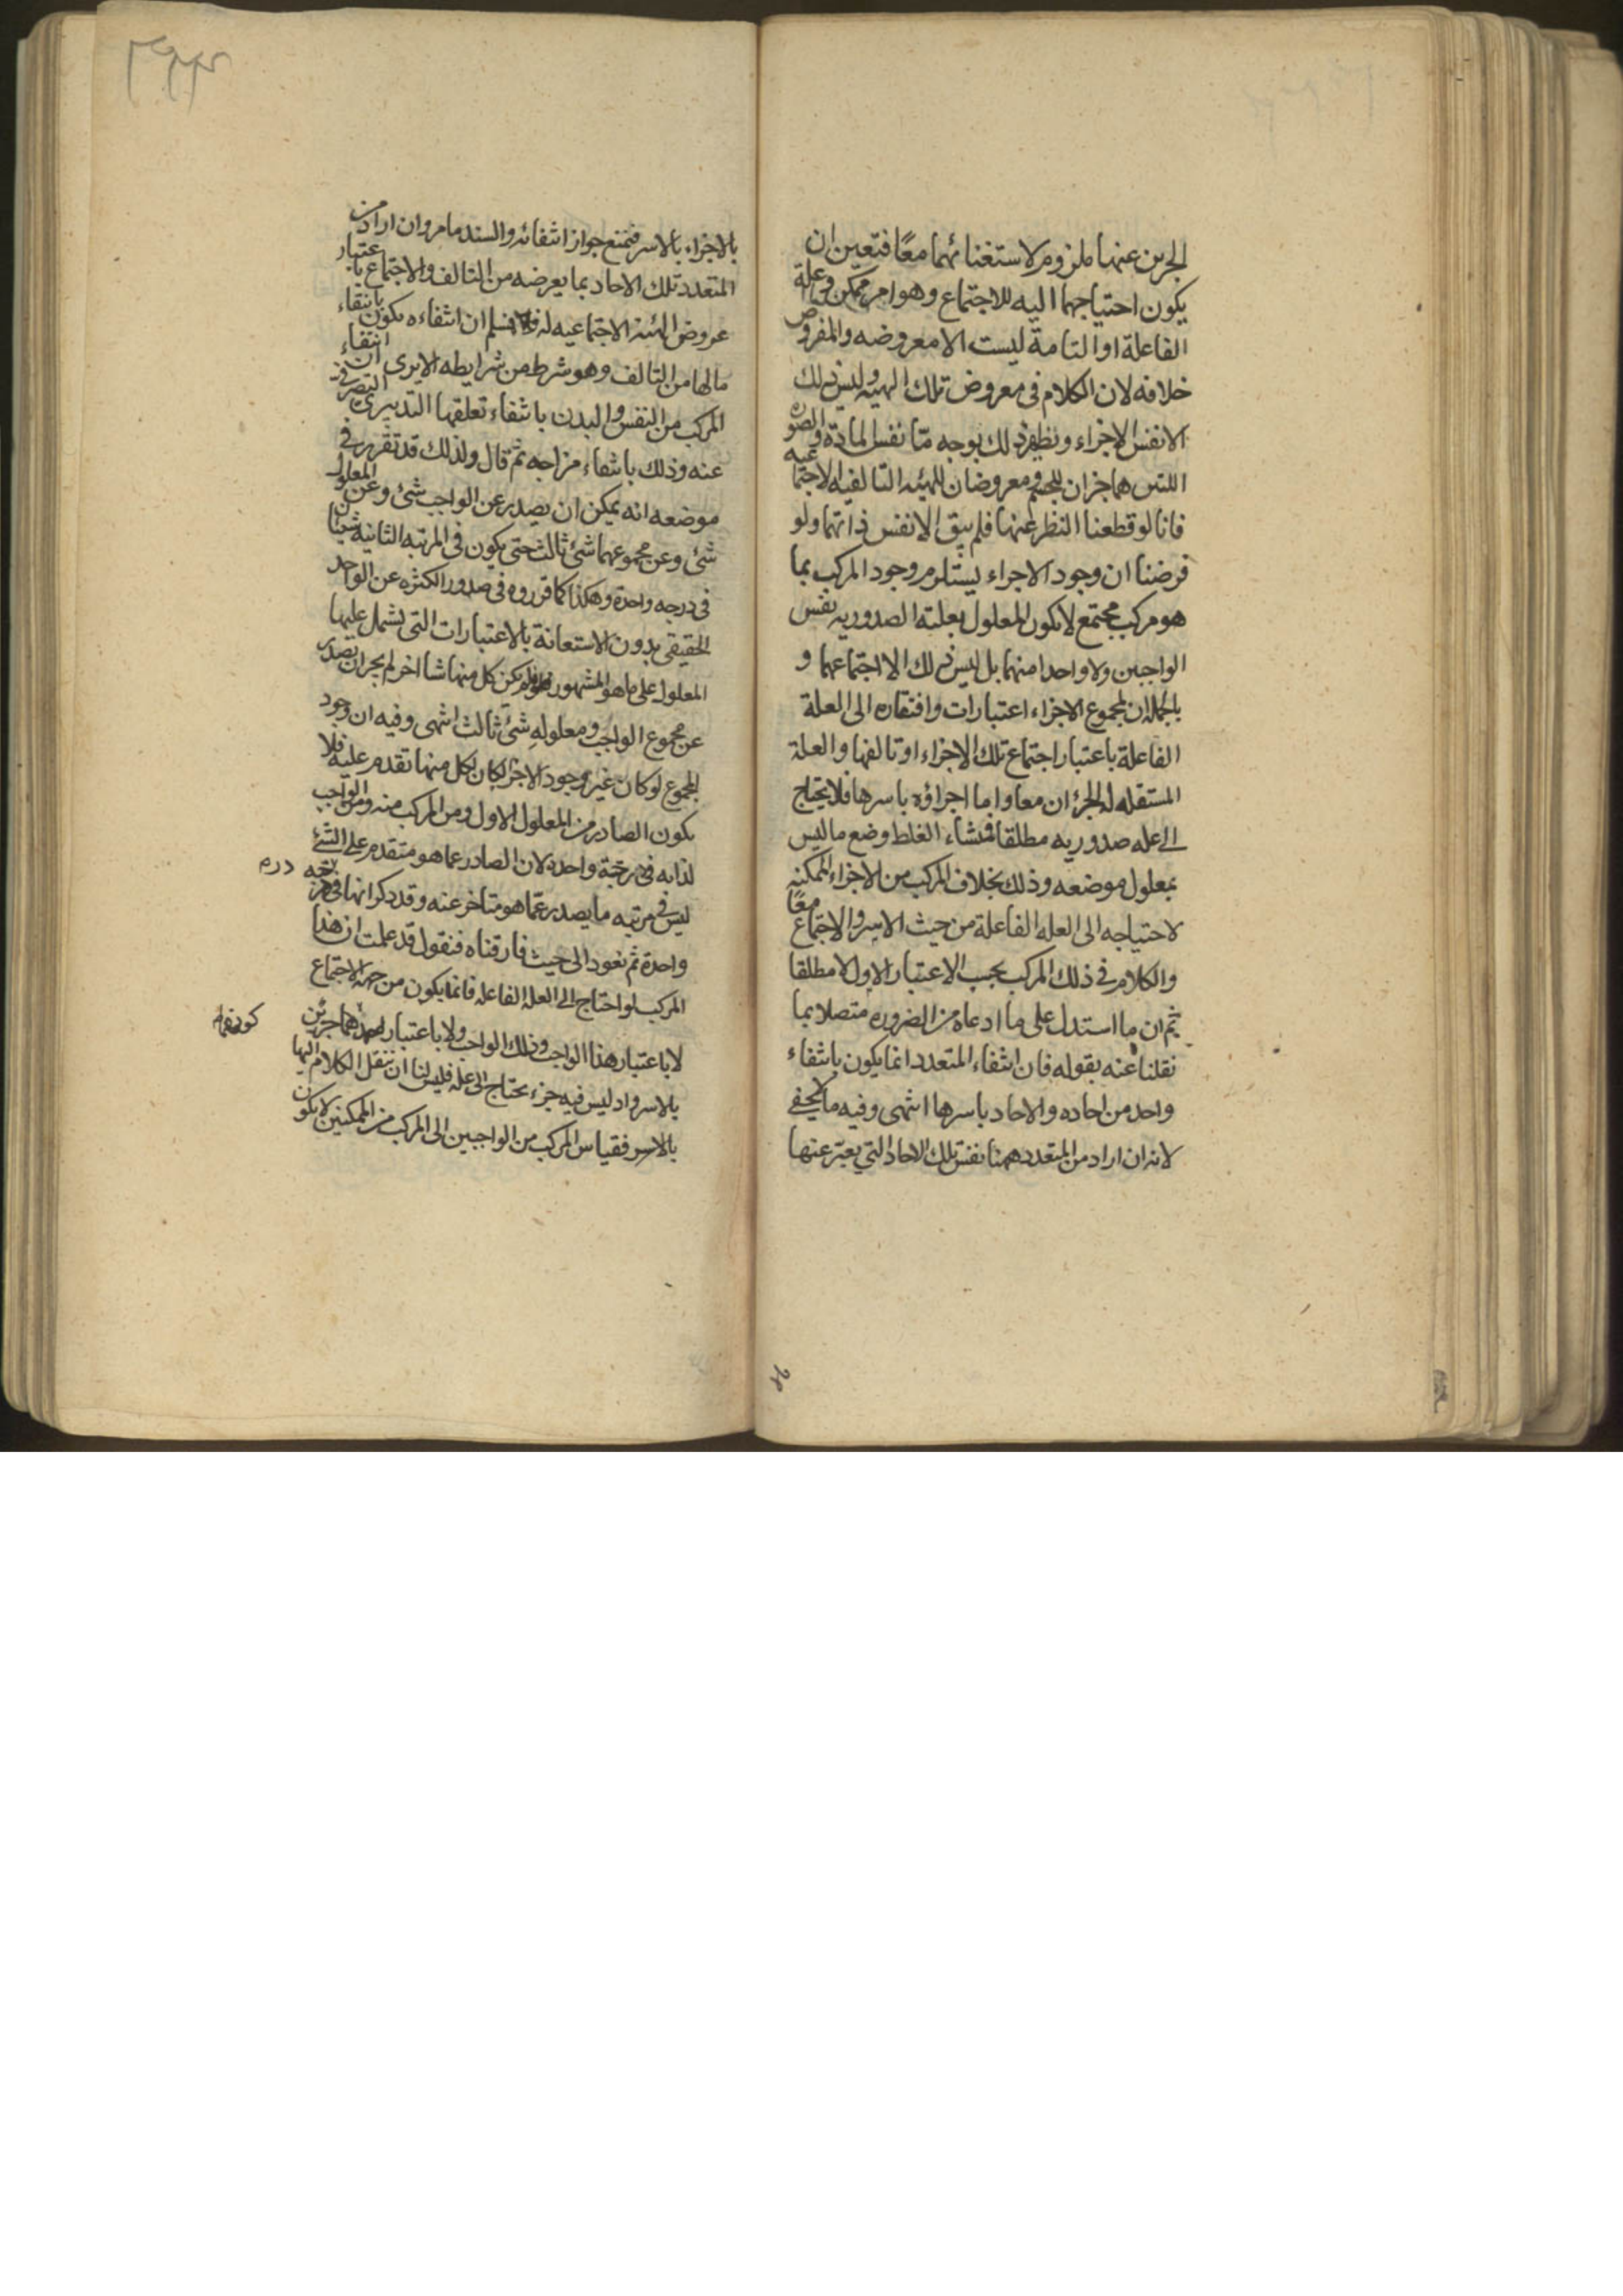 الجزين عنها ملزوم لاستغنائهما معًا فتعين ان
يكون احتياجهما اليه للاجتماع وهو امر ممكن وعلة
الفاعلة او التامة ليست الا معروضه والمفروض
خلافه لان الكلام فى معروض تلك الهيه وليس ذلك
الا نفس الاجزاء ونظير ذلك بوجه مّا نفس المادة والصوره
اللتين هما جزان للجسم ومعروضان للهيئه التالفيه الاجتماعيه
فانا لو قطعنا النظر عنها فلم يبق الا نفس ذاتهما ولو
فرضنا ان وجود الاجزاء يستلزم وجود المركب بما
هو مركب مجتمع لا يكون المعلول بعلته الصدوريه نفس
الواجبين ولا واحدا منهما بل ليس ذلك الا اجتماعهما و
بالجمله ان لمجموع الاجزاء اعتبارات وافتقاره الى العلة
الفاعلة باعتبار اجتماع تلك الاجزاء او تالفها والعلة
المستقله له الجزئان معا واما اجزاؤه باسرها فلا يحتاج
الى عله صدوريه مطلقا فمنشاء الغلط وضع ما ليس
بمعلول موضعه وذلك بخلاف المركب من الاجزاء الممكنه
لاحتياجه الى العله الفاعلة من حيث الاسر والاجتماع معًا
والكلام فى ذلك المركب بحسب الاعتبار الاول لا مطلقا
ثم ان ما استدل على ما ادعاه من الضروره متصلا بما
نقلنا عنه بقوله فان انتفاء المتعدد انما يكون بانتفاء
واحد من احاده والاحاد باسرها انتهى وفيه ما لا يخفى
لانه ان اراد من المتعدد ههنا نفس تلك الاحاد التي يعبّر عنها
بالاجزاء بالاسر فنمنع جواز انتفائه والسند ما مر وان اراد من
المتعدد تلك الاحاد بما يعرضه من التالف والاجتماع باعتبار
عروض الهيئه الاجتماعيه له فلا نسلم ان انتفاءه يكون بانتفاء
ما لها من التالف وهو شرط من شرايطه الا يرى ان انتفاء
المركب من النفس والبدن بانتفاء تعلقها التدبيرى التصرفى
عنه وذلك بانتفاء مزاجه ثم قال ولذلك قد تقرر فى
موضعه انه يمكن ان يصدر عن الواجب شئ وعن المعلول
شئ وعن مجموعهما شئ ثالث حتى يكون فى المرتبه الثانيه شيئان
فى درجه واحدة وهكذا كما قرروه فى صدور الكثره عن الواحد
الحقيقى بدون الاستعانة بالاعتبارات التى يشمل عليها
المعلول على ما هو المشهور فلو لم يكن كل منها شيئا اخر لم يجز ان يصدر
عن مجموع الواجب ومعلوله شئ ثالث انتهى وفيه ان وجود
المجموع لو كان غير وجود الاجزاء لكان لكل منها تقدم عليه فلا
يكون الصادر من المعلول الاول ومن المركب منه ومن الواجب
لذاته فى مرتبة واحدة لان الصادر عما هو متقدم على الشئ
ليس فى مرتبه ما يصدر عمّا هو متاخر عنه وقد ذكر انها فى درجه
واحدة ثم نعود الى حيث فارقناه فنقول قد علمت ان هذا
المركب لو احتاج الى العله الفاعله فانما يكون من جهه الاجتماع
لا باعتبار هذا الواجب وذلك الواجب ولا باعتبار كونهما جزئين
بالاسر واذ ليس فيه جزء يحتاج الى عله فليس لنا ان ننقل الكلام اليها
بالاسر فقياس المركب من الواجبين الى المركب من الممكنين لا يكون